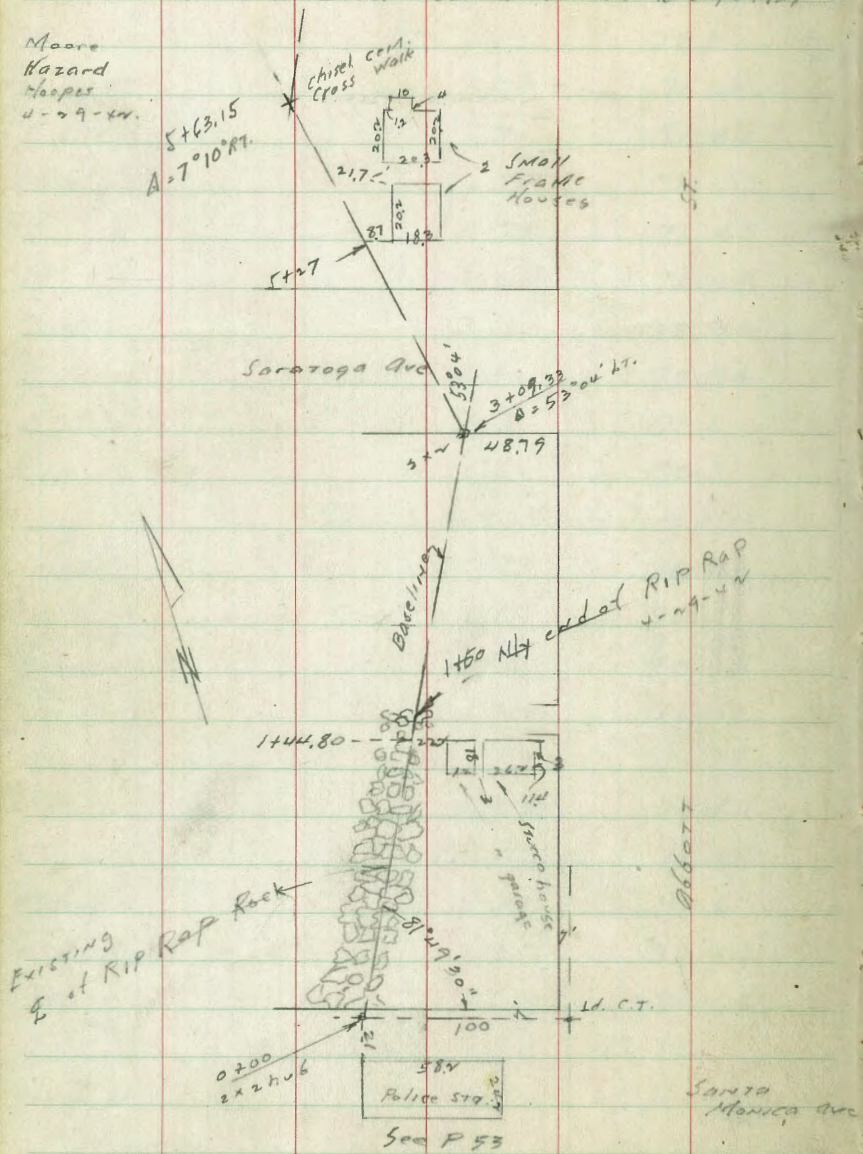 Moore
Hazard
Hoopes
4-29-42.
chisel cem.
Cross Walk
5+63.15
Δ=7°10'RT.
10
4
12
20.2
20.2
20.3
21.7
2 Small
Frame
Houses
20.2
8.7
18.3
5+27
ST.
Saratoga Ave
53°04'
3+09.33
Δ=53°04' LT.
48.79
Baseline
1+50 N'ly end of RIP RAP
4-29-42
1+44.80
22
18
12
3
26.2
11.4
Stucco house
" garage
7'
Abbott
Existing
℄ of RIP RAP Rock
81°49'30"
100
7'
Ld. C.T.
0+00
2x2 hub
21
58.2
Police Sta.
See P 53
Santa
Monica Ave